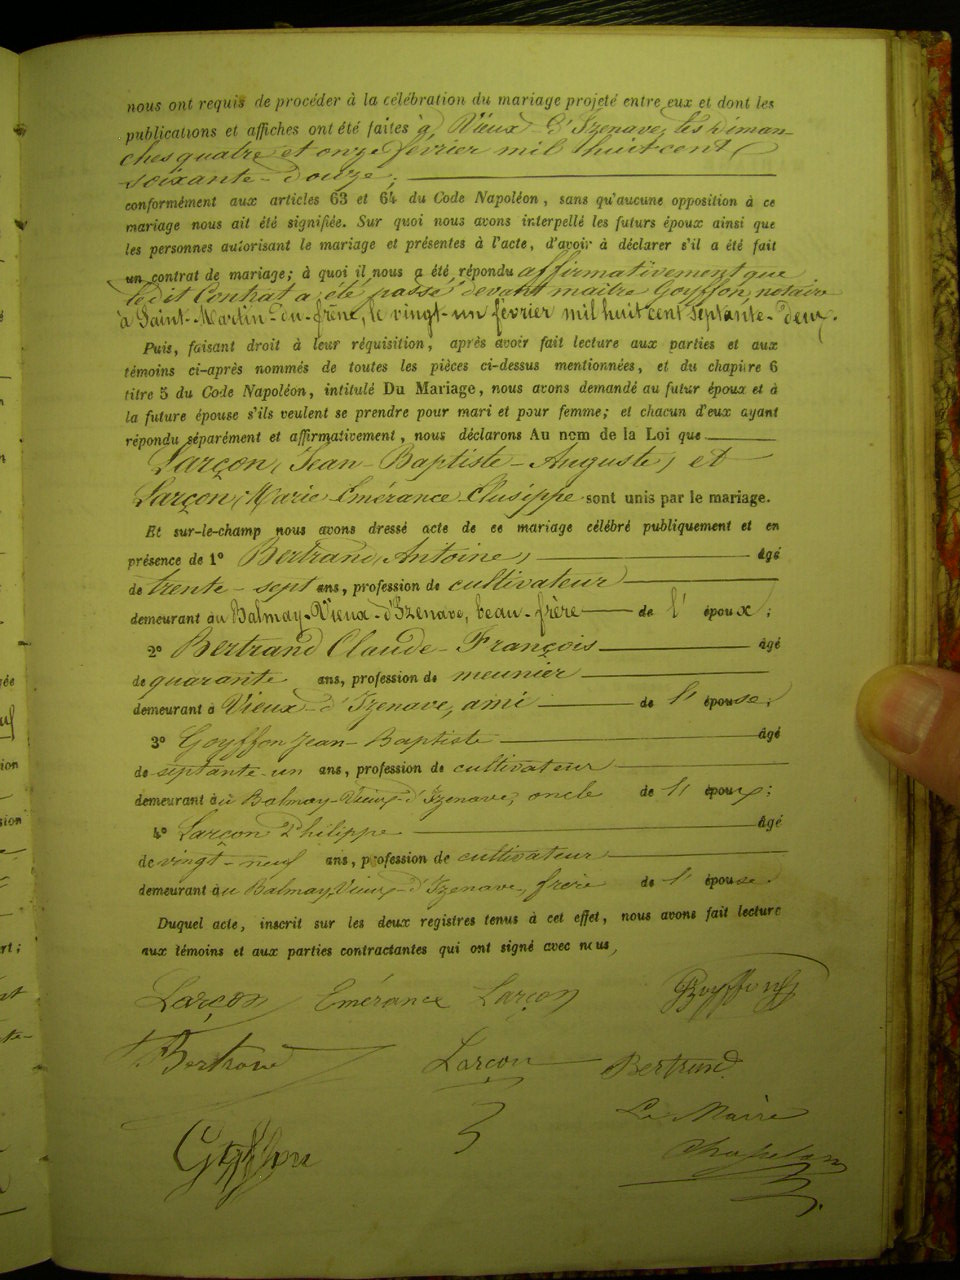 nous ont requis de procéder à la célébration du mariage projeté entre eux et dont les
publications et affiches ont été faites à Vieux-d'Izenave, les diman-
ches quatre et onze fevrier mil huit cent
soixante-douze;
conformément aux articles 63 et 64 du Code Napoléon, sans qu'aucune opposition à ce
mariage nous ait été signifiée. Sur quoi nous avons interpellé les futurs époux ainsi que
les personnes autorisant le mariage et présentes à l'acte, d'avoir à déclarer s'il a été fait
un contrat de mariage; à quoi il nous a été répondu affirmativement que
ledit Contrat a été passé devant maître Goyffon, notaire
à Saint-Martin-du-frêne, le vingt-un février mil huit cent septante-deux.
Puis, faisant droit à leur réquisition, après avoir fait lecture aux parties et aux
témoins ci-après nommés de toutes les pièces ci-dessus mentionnées, et du chapitre 6
titre 5 du Code Napoléon, intitulé Du Mariage, nous avons demandé au futur époux et à
la future épouse s'ils veulent se prendre pour mari et pour femme; et chacun d'eux ayant
répondu séparément et affirmativement, nous déclarons Au nom de la Loi que
Larçon, Jean-Baptiste-Auguste, et
Larçon, Marie Emérance Clusippe sont unis par le mariage.
Et sur-le-champ nous avons dressé acte de ce mariage célébré publiquement et en
présence de 1° Bertrand, Antoine, âgé
de trente-sept ans, profession de cultivateur
demeurant au Balmay-Vieux-d'Izenave, beau-frère de l'époux;
2° Bertrand Claude-François âgé
de quarante ans, profession de meunier
demeurant à Vieux-d'Izenave, ami de l'épouse;
3° Goyffon Jean-Baptiste âgé
de septante-un ans, profession de cultivateur
demeurant au Balmay-Vieux-d'Izenave, oncle de l'époux;
4° Larçon Philippe âgé
de vingt-neuf ans, profession de cultivateur
demeurant au Balmay, Vieux-d'Izenave, frère de l'épouse.
Duquel acte, inscrit sur les deux registres tenus à cet effet, nous avons fait lecture
aux témoins et aux parties contractantes qui ont signé avec nous,
Larçon Emérance Larçon Goyffon
Bertrand Larçon Bertrand
Le Maire
Goyffon